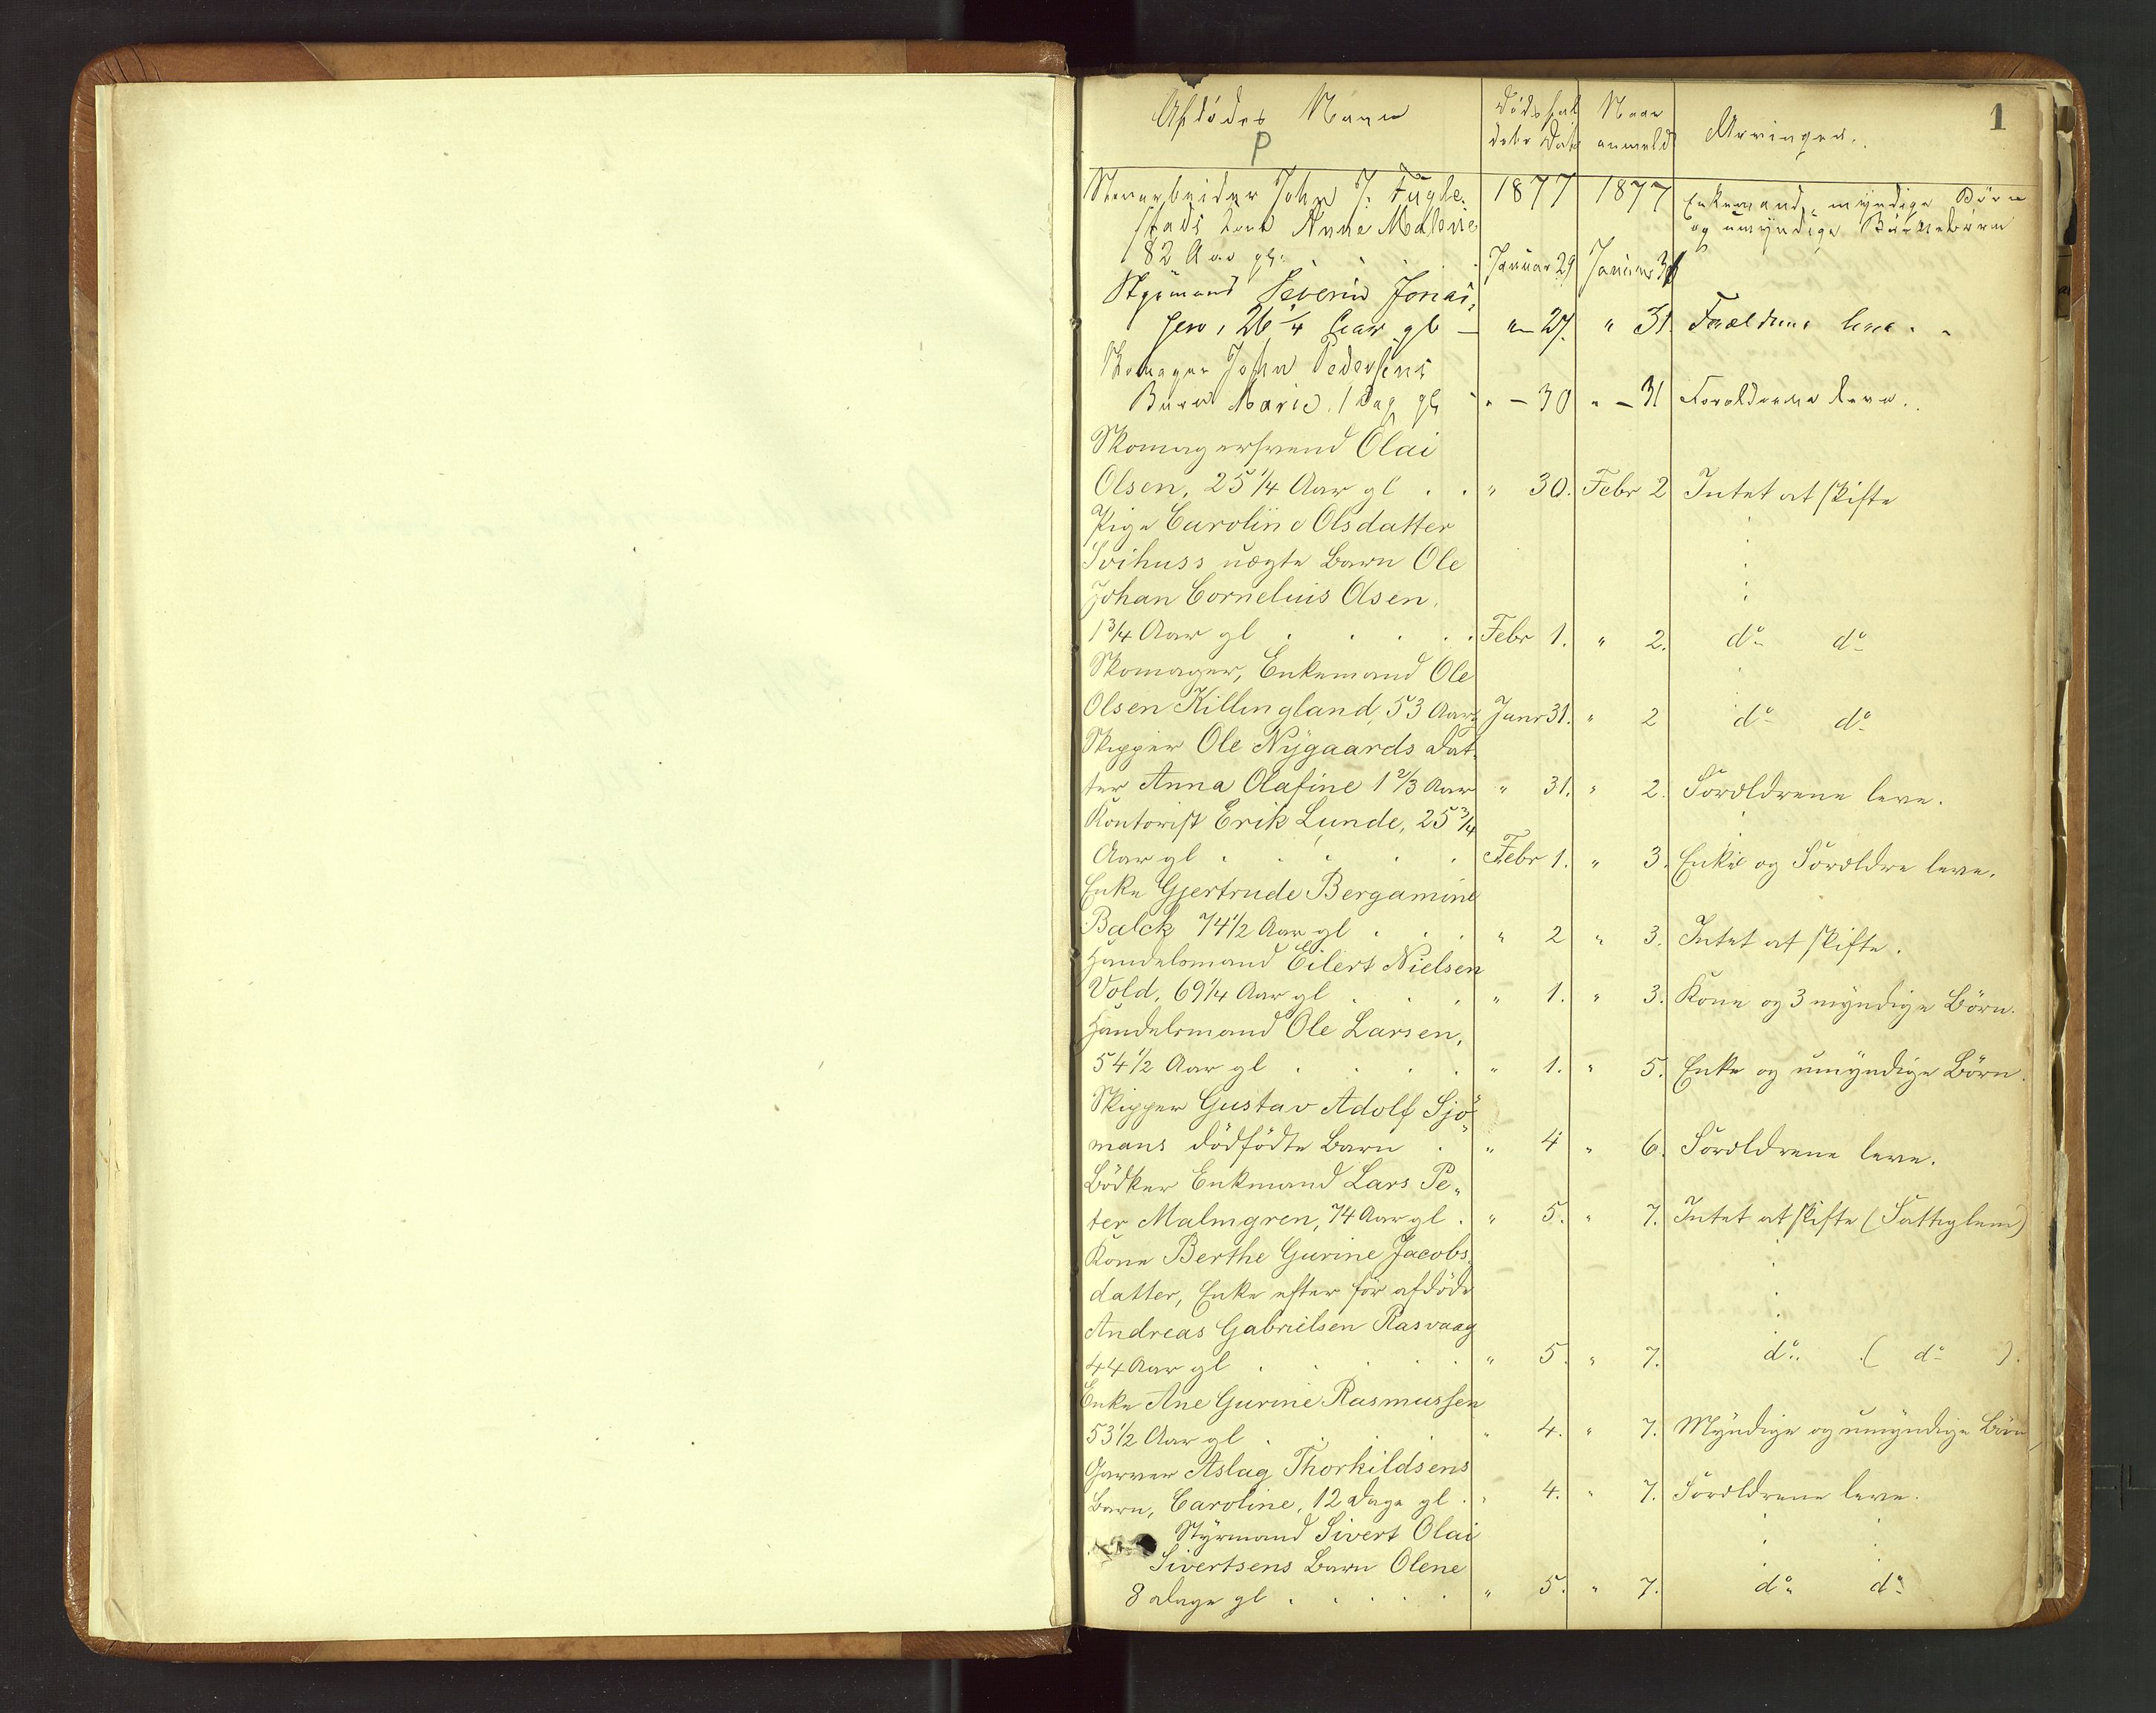 1
Afdødes Navn
Dødsfal
dets Dato
Naar
anmeldt
Arvinger.
P
Stenarbeider John J. Fugle-
stads Kone Anne Malene
82 Aar gl.
1877
1877
Januar 29
Januar 31
Enkemand, myndige Børn
og umyndige Børnebørn
Styrmand Severin Jonas-
sen, 26 1/4 Aar gl — " 27. " 31. Forældrene leve.
Skomager John Pedersens
Barn Marie, 1 Dag gl " — 30 " — 31 Forældrene leve.
Skomagersvend Olai
Olsen, 25 1/4 Aar gl . . " 30. Febr 2 Intet at skifte
Pige Caroline Olsdatter
Svihuss uægte Barn Ole
Johan Cornelius Olsen,
1 3/4 Aar gl . . . . . Febr 1. " 2. do do
Skomager, Enkemand Ole
Olsen Killingland, 53 Aar, Janr 31. " 2 do do
Skipper Ole Nygaards Dat-
ter Anna Olafine 1 2/3 Aar " 31. " 2. Forældrene leve.
Kontorist Erik Lunde, 25 3/4
Aar gl . . . . . Febr 1. " 3. Enke og Forældre leve.
Enke Gjertrude Bergamine
Balck 74 1/2 Aar gl . . . " 2 " 3. Intet at skifte.
Handelsmand Eilert Nielsen
Vold, 69 1/4 Aar gl . . . " 1. " 3. Kone og 3 myndige Børn.
Handelsmand Ole Larsen,
54 1/2 Aar gl . . . . " 1. " 5. Enke og umyndige Børn.
Skipper Gustav Adolf Sjö-
mans dødfødte Barn . " 4 " 6. Forældrene leve.
Bödker Enkmand Lars Pe-
ter Malmgren, 74 Aar gl . " 5. " 7. Intet at skifte (Fattiglem)
Kone Berthe Gurine Jacobs-
datter, Enke efter för afdöde
Andreas Gabrielsen Rasvaag
44 Aar gl . . . . . " 5. " 7. do. ( do ).
Enke Ane Gurine Rasmussen
53 1/2 Aar gl . . . " 4. " 7. Myndige og umyndige Børn
Garver Aslag Thorkildsens
Barn, Caroline, 12 Dage gl . " 4. " 7. Forældrene leve.
Styrmand Sivert Olai
Sivertsens Barn Olene
8 Dage gl . . . . . " 5. " 7. do do